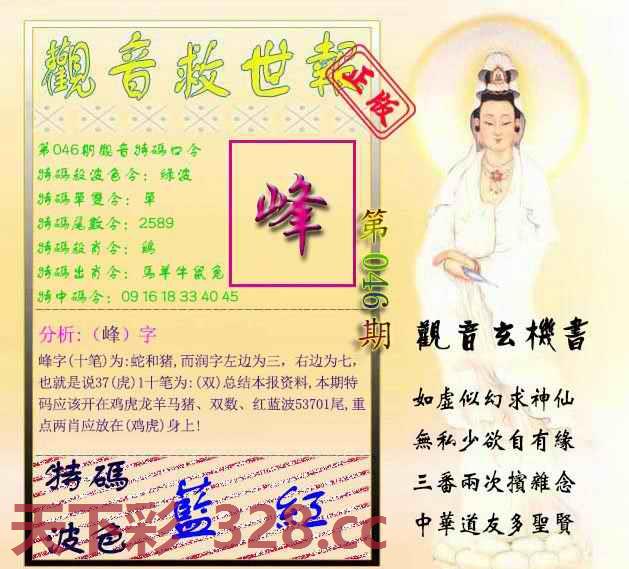 觀音救世報
正版
第046期觀音特碼口令
特碼殺波色令：綠波
特碼單雙令：單
特碼尾數令：2589
特碼殺肖令：鷄
特碼出肖令：馬羊牛鼠兔
特中碼令：09 16 18 33 40 45
峰
第046期
分析:（峰）字
峰字(十笔)为:蛇和猪,而润字左边为三，右边为七，
也就是说37(虎)1十笔为:(双)总结本报资料,本期特
码应该开在鸡虎龙羊马猪、双数、红蓝波53701尾,重
点两肖应放在(鸡虎)身上!
特碼
波色
藍 紅
天下彩 328.cc
觀音玄機書
如虛似幻求神仙
無私少欲自有緣
三番兩次擯雜念
中華道友多聖賢